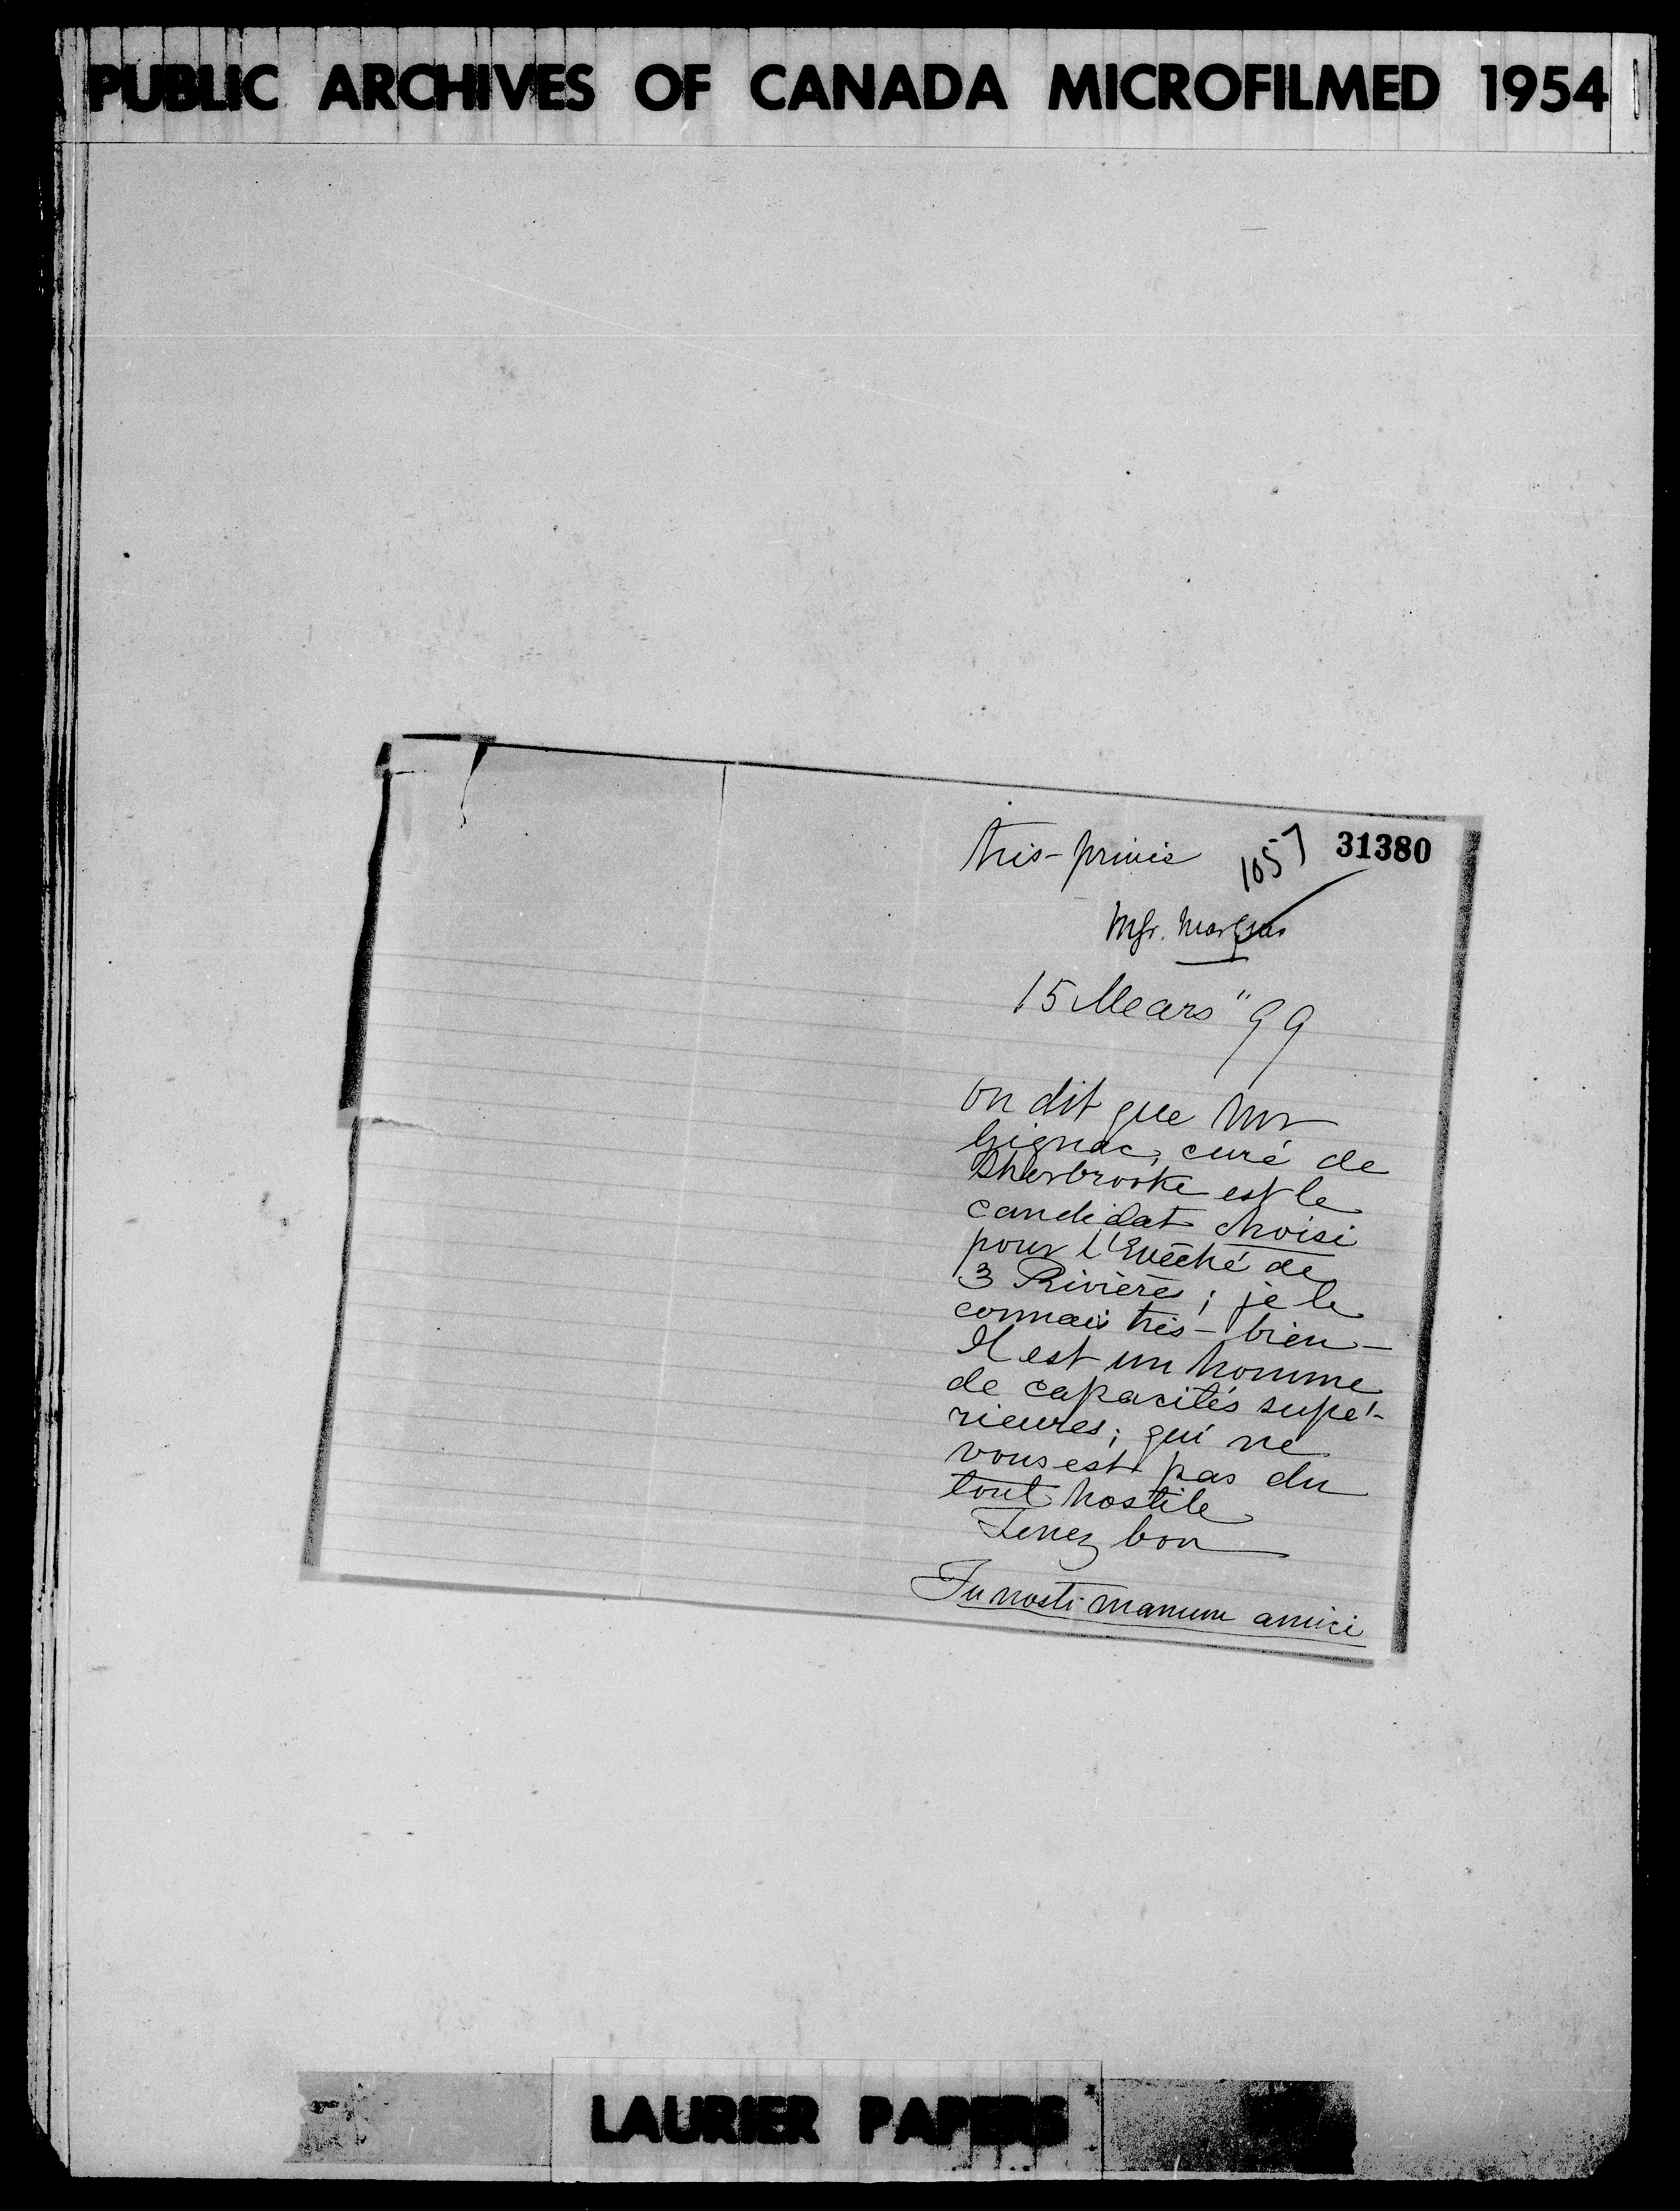 PUBLIC ARCHIVES OF CANADA MICROFILMED 1954
très-privée 1057 31380
Mgr. Marquis
15 Mars "99
on dit que Mr
Gignac, curé de
Sherbrooke est le
candidat choisi
pour l'Evêché de
3 Rivières; je le
connais très-bien-
Il est un homme
de capacités supé-
rieures; qui ne
vous est pas du
tout hostile
Tenez bon
Tu nosti manum amici
LAURIER PAPERS